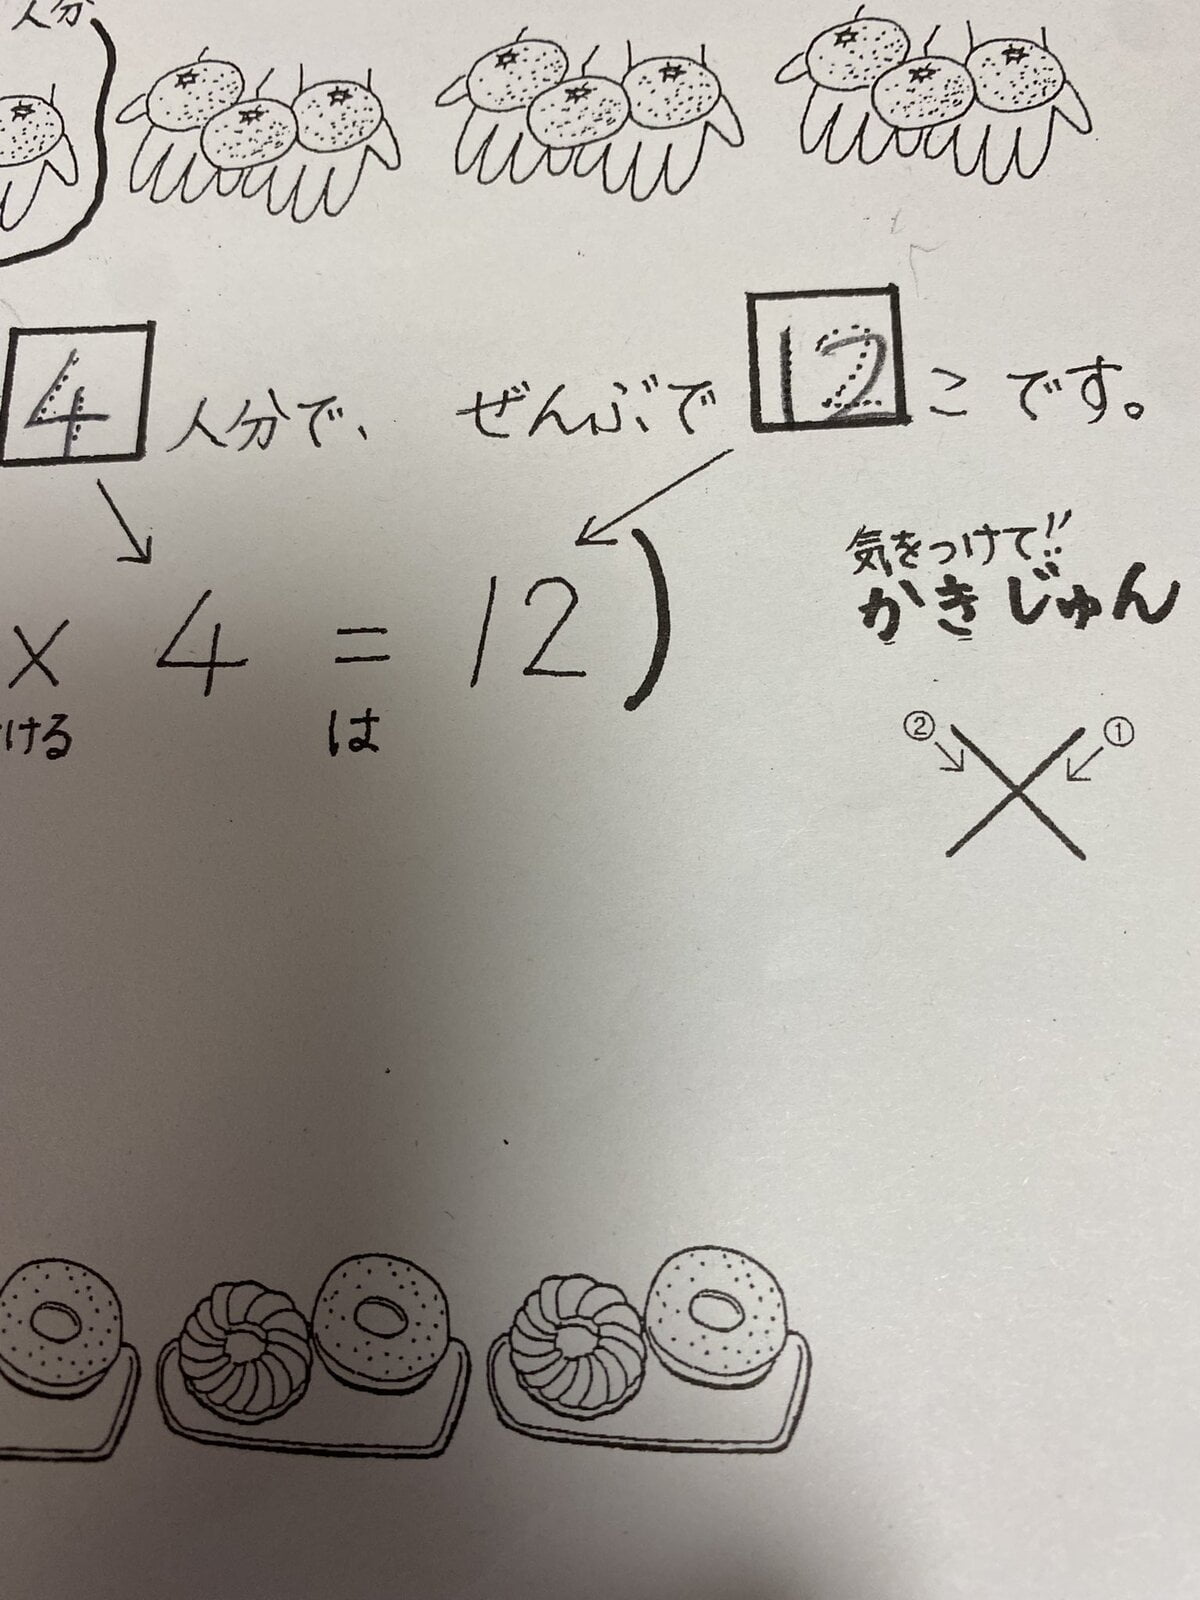 人分
4 人分で、 ぜんぶで 12 こ です。
× 4 = 12)
ける は
気をつけて!!
かきじゅん
② ①